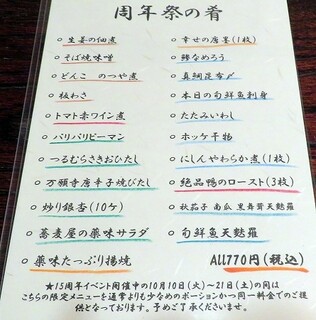 周年祭の肴
○ 生姜の佃煮
○ そば焼味噌
○ どんこ のつや煮
○ 板わさ
○ トマト赤ワイン煮
○ バリバリピーマン
○ つるむらさきおひたし
○ 万願寺唐辛子焼びたし
○ 炒り銀杏(10ケ)
○ 蕎麦屋の薬味サラダ
○ 薬味たっぷり揚焼
○ 幸せの唐墨(1枚)
○ 鯵なめろう
○ 真鯛昆布〆
○ 本日の旬鮮魚刺身
○ たたみいわし
○ ホッケ干物
○ にしんやわらか煮(1枚)
○ 絶品鴨のロースト(3枚)
○ 秋茄子 南瓜 黒舞茸天麩羅
○ 旬鮮魚天麩羅
All770円(税込)
★15周年イベント開催中の10月10日(火)~21日(土)の間は
こちらの限定メニューを通常よりも少なめのポーションかつ同一料金でのご提
供となっております。予めご了承くださいませ。